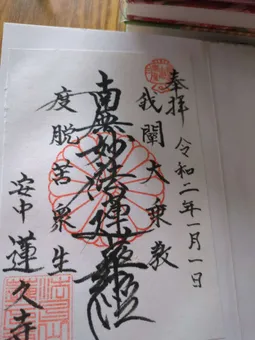 奉拝 令和二年一月一日
我闡大乗教
南無妙法蓮華経
度脱苦衆生
安中 蓮久寺